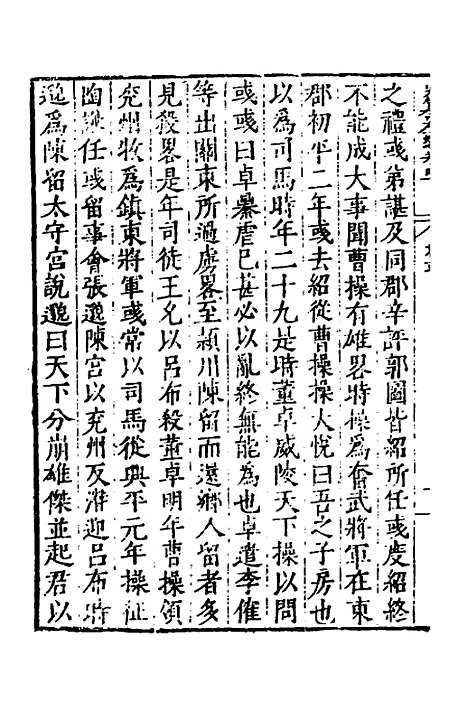 之禮彧弟諶及同郡辛評郭圖皆紹所任彧度紹終
不能成大事聞曹操有雄畧時操爲奮武將軍在東
郡初平二年彧去紹從曹操操大悅曰吾之子房也
以爲司馬時年二十九是時董卓威陵天下操以問
彧彧曰卓暴虐已甚必以亂終無能爲也卓遣李傕
等出關東所過虜畧至潁川陳留而還鄉人留者多
見殺畧是年司徒王允以呂布殺董卓明年曹操領
兖州牧爲鎮東將軍彧常以司馬從興平元年操征
陶謙任彧留事會張邈陳宮以兖州反潛迎呂布時
邈爲陳留太守宮說邈曰天下分崩雄傑並起君以